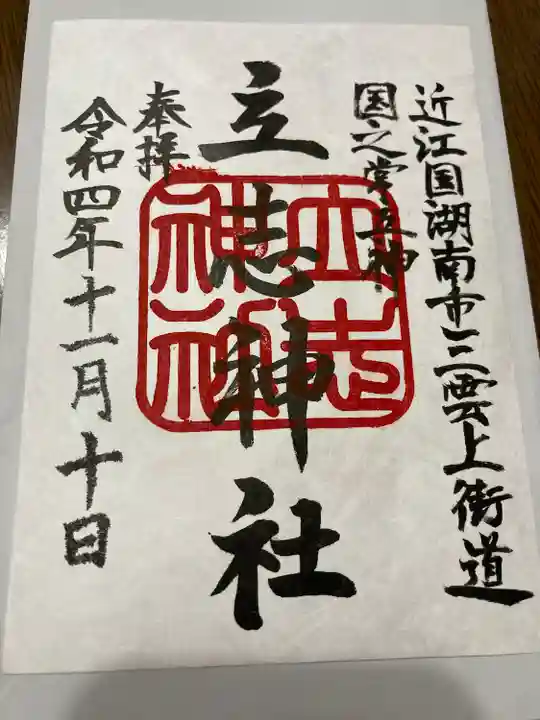 近江国湖南市三雲上街道
国之常立神
立志神社
奉拝
令和四年十一月十日